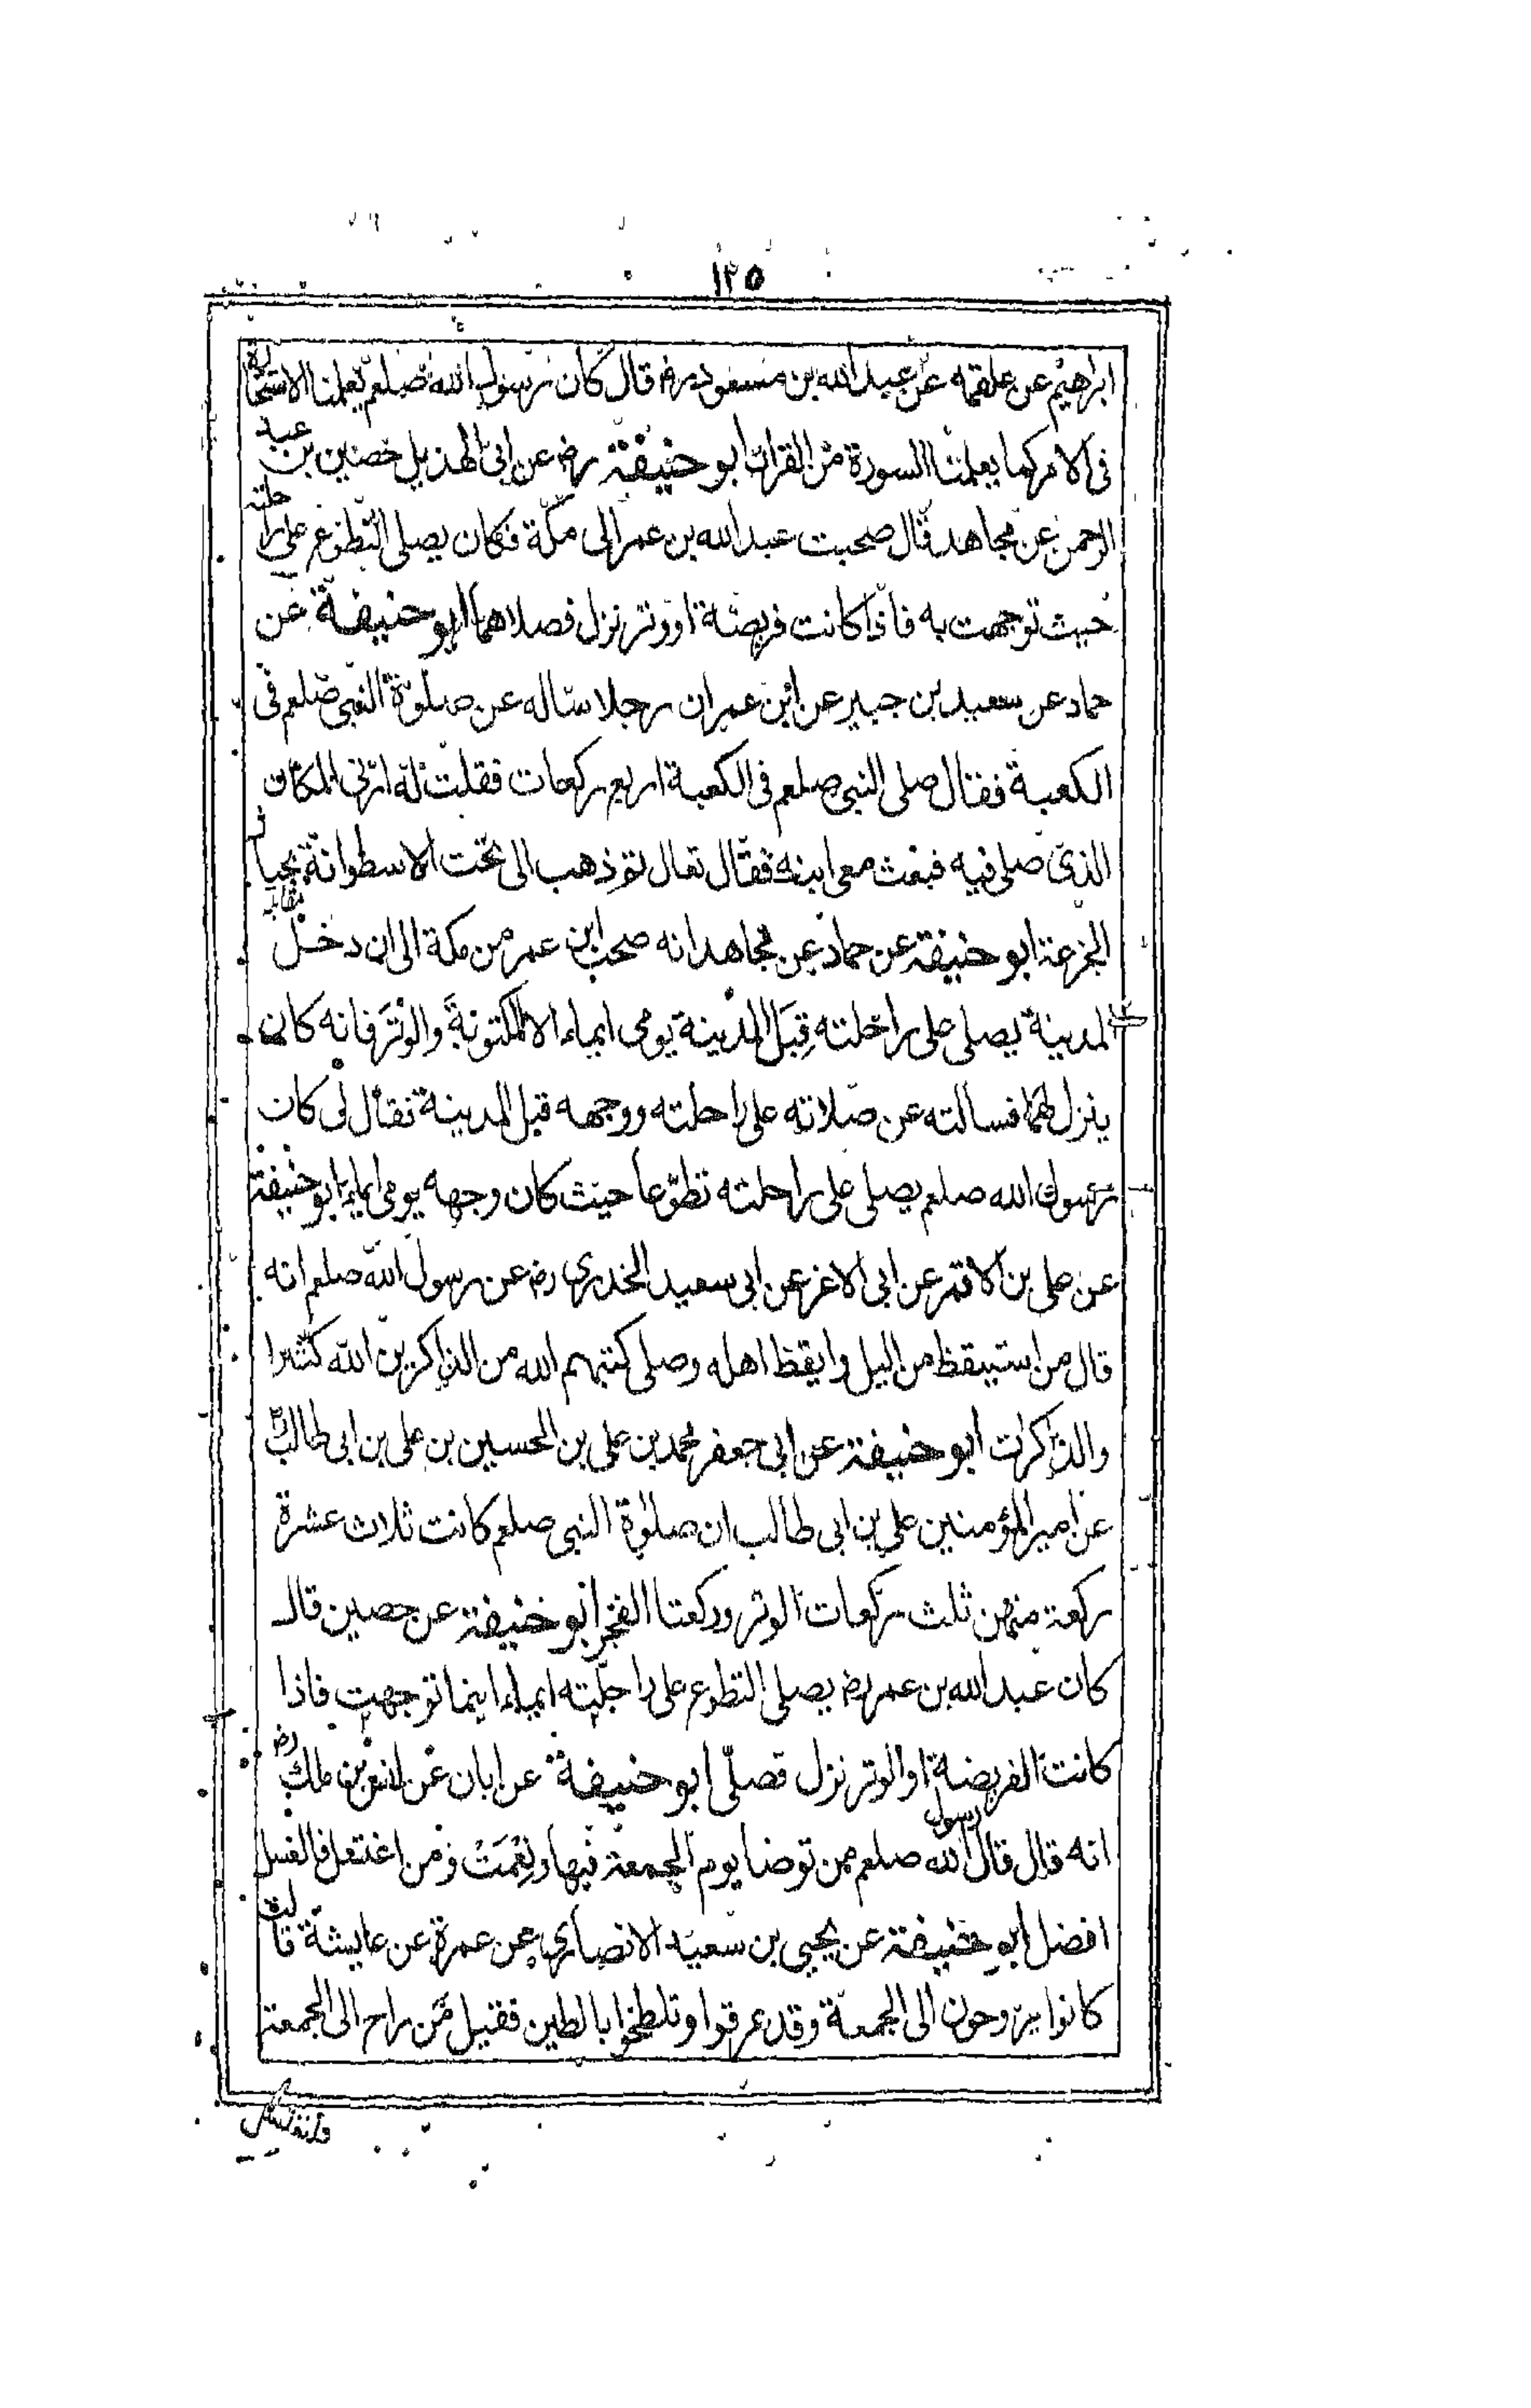 ١٢٥
ابراهيم عن علقمه عن عبد الله بن مسعود رضه قال كان رسول الله صلعم يعلمنا الاستخارة
فى الامر كما يعلمنا السورة من القران ابو حنيفة رضه عن ابى الهذيل حصين بن عبد
الرحمن عن مجاهد قال صحبت عبد الله بن عمر الى مكة فكان يصلى التطوع على راحلته
حيث توجهت به فاذا كانت فريضة او وتر نزل فصلاهما ابو حنيفة عن
حماد عن سعيد بن جبير عن ابن عمر ان رجلا ساله عن صلوة النبى صلعم فى
الكعبة فقال صلى النبى صلعم فى الكعبة اربع ركعات فقلت له ارنى المكان
الذى صلى فيه فبعث معى ابنه فقال تعال ثم ذهب الى تحت الاسطوانة بحيال
الجزعة ابو حنيفة عن حماد عن مجاهد انه صحب ابن عمر من مكة الى ان دخل
المدينة يصلى على راحلته قِبَل المدينة يومى ايماء الا المكتوبةَ والوترَ فانه كان
ينزل لهما فسالته عن صلاته على راحلته ووجهه قبل المدينة فقال لى كان
رسول الله صلعم يصلى على راحلته تطوّعا حيث كان وجهه يومى ايماء ابو حنيفة
عن على بن الاقمر عن ابى الاغر عن ابى سعيد الخدرى رضه عن رسول الله صلعم انه
قال من استيقظ من اليل وايقظ اهله وصلى كتبهم الله من الذاكرين الله كثيرا
والذاكرات ابو حنيفة عن ابى جعفر محمد بن على بن الحسين بن على بن ابى طالب
عن امير المؤمنين على بن ابى طالب ان صلوة النبى صلعم كانت ثلاث عشرة
ركعة منهن ثلث ركعات الوتر وركعتا الفجر ابو حنيفة عن حصين قال
كان عبد الله بن عمر رضه يصلى التطوع على راحلته ايماء اينما توجهت فاذا
كانت الفريضة او الوتر نزل فصلّى ابو حنيفة عن ابان عن انس بن ملك رضه
انه قال قال رسول الله صلعم من توضا يوم الجمعة فبها ونِعْمَتْ ومن اغتسل فالغسل
افضل ابو حنيفة عن يحيى بن سعيد الانصارى عن عمرة عن عايشة قالت
كانوا يروحون الى الجمعة وقد عرقوا وتلطخوا بالطين فقيل مَن راح الى الجمعة